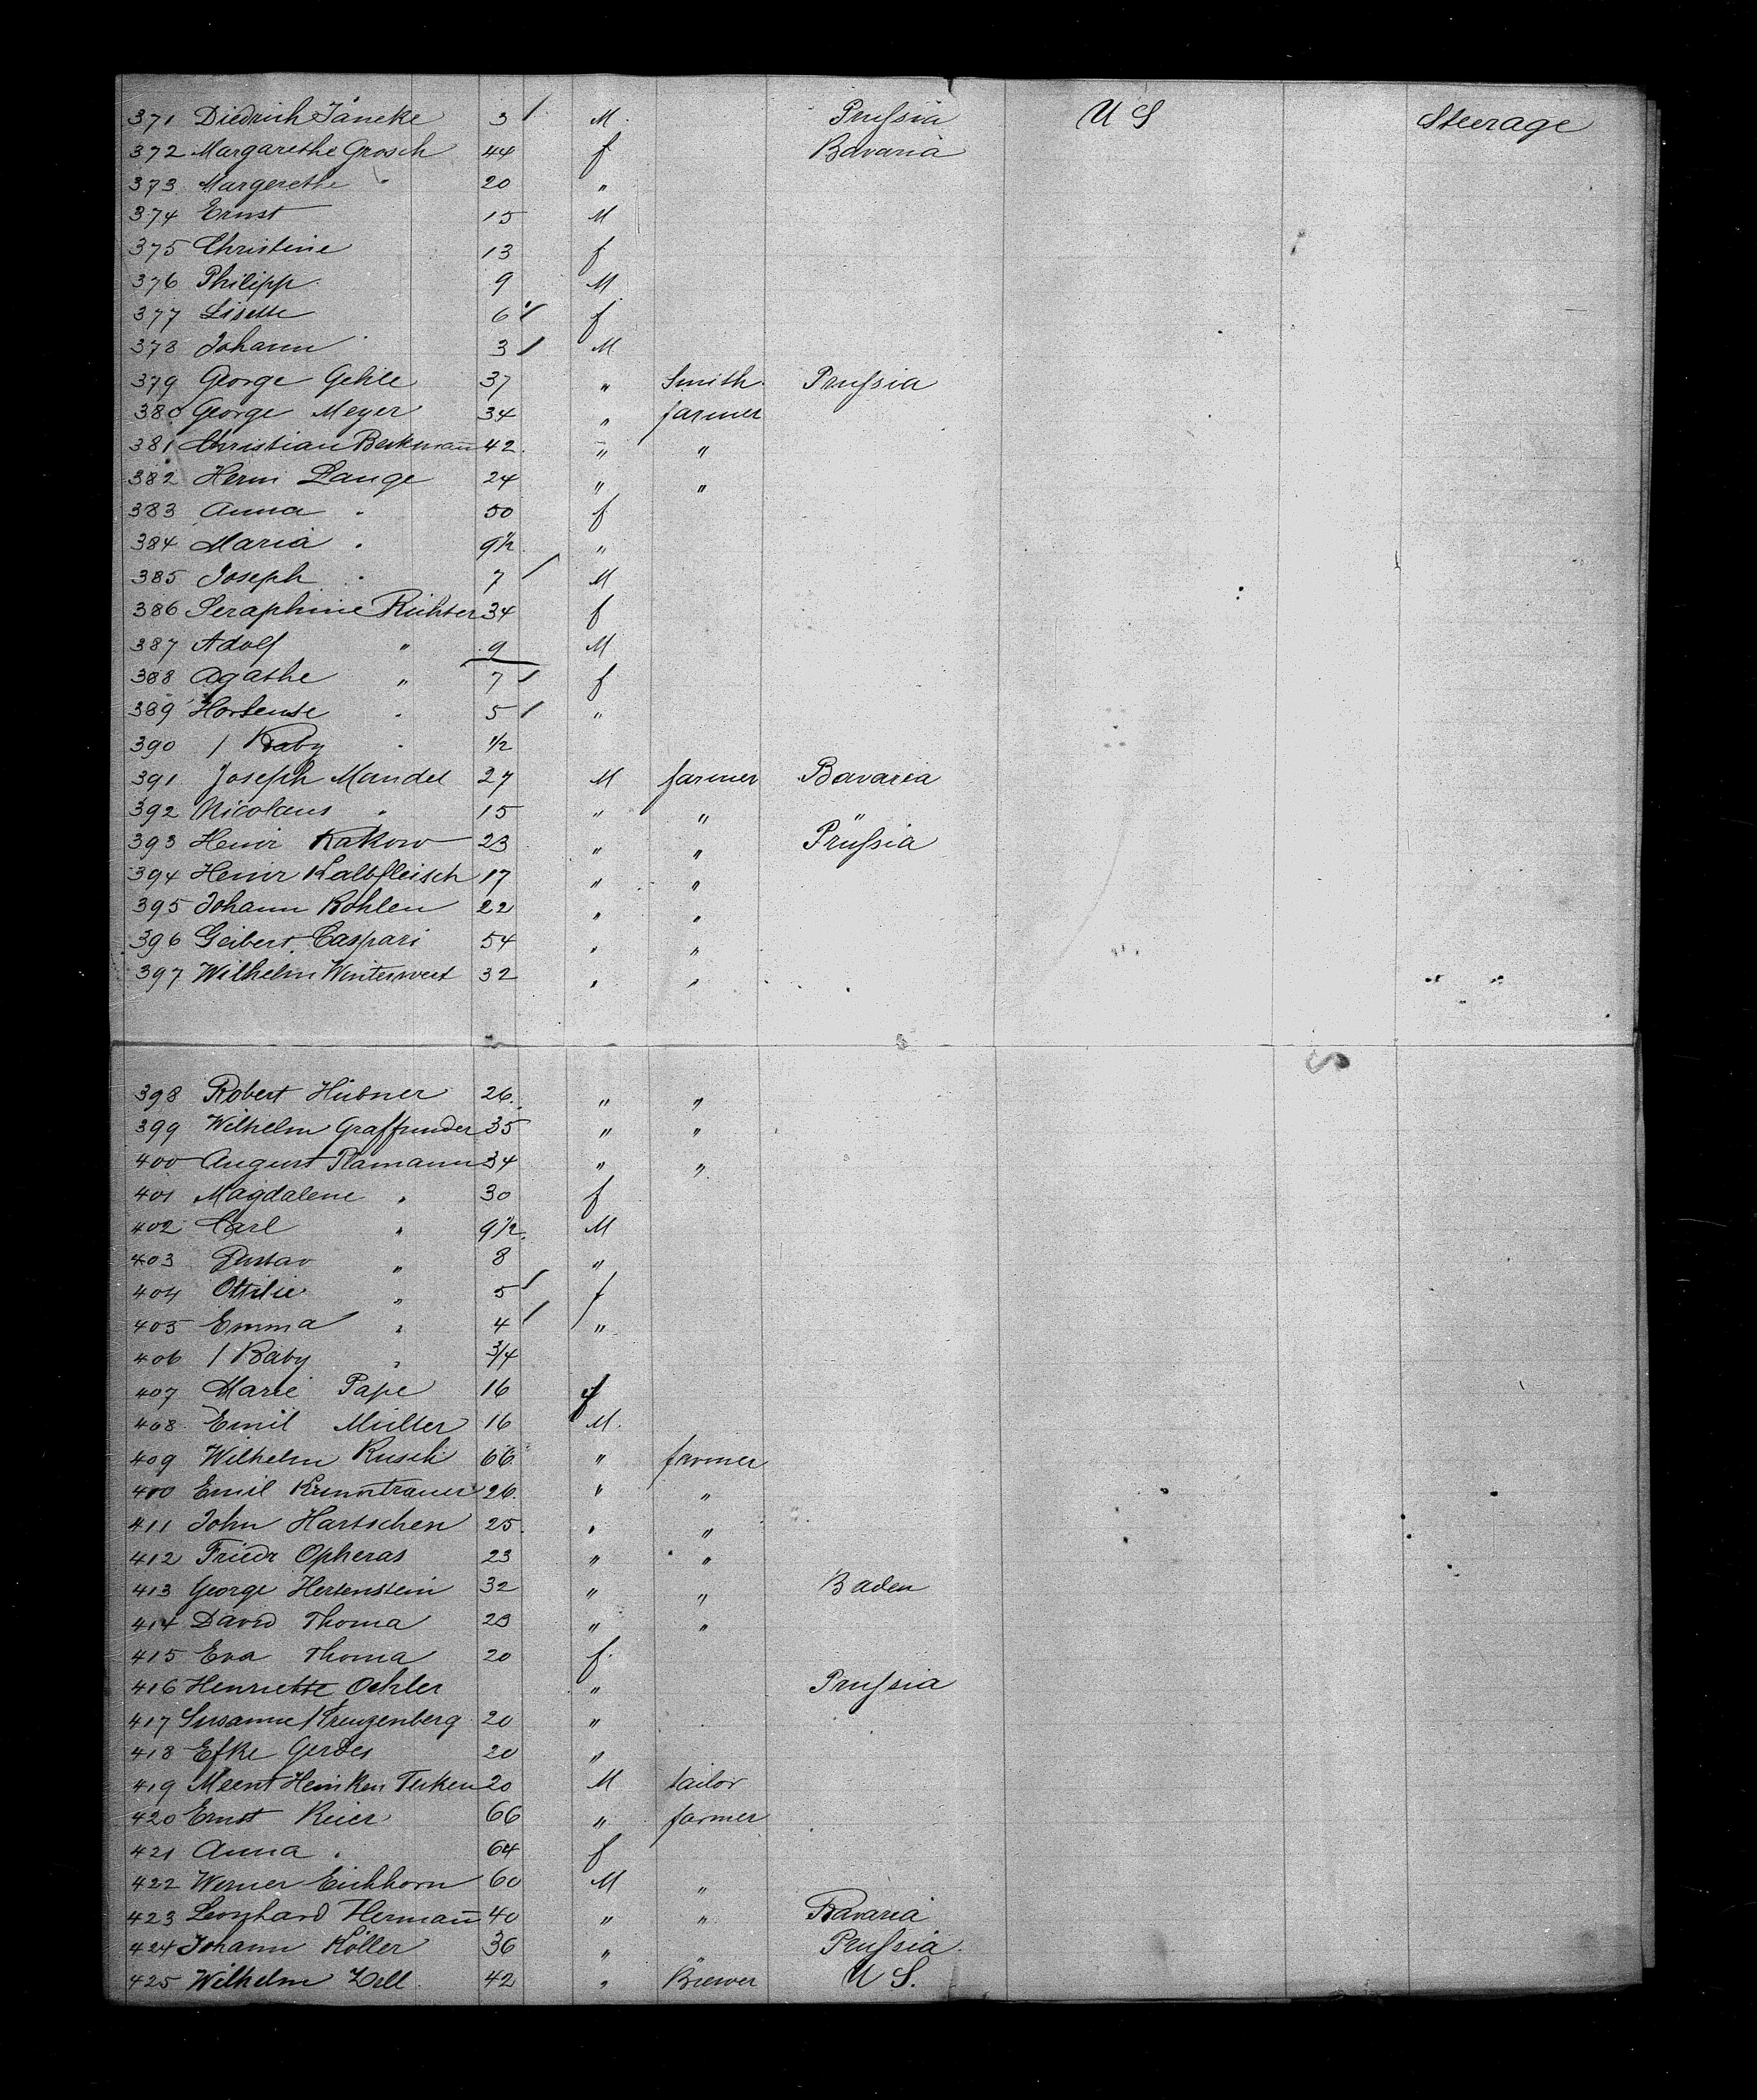 371 Diedrich Jäneke 3 / M. Prussia U S Steerage
372 Margarethe Grosch 44 f Bavaria
373 Margerethe " 20 "
374 Ernst 15 M
375 Christine 13 f
376 Philipp 9 M
377 Lisette 6 / f
378 Johann 3 / M
379 George Gehle 37 " Smith Prussia
380 George Meyer 34 " farmer
381 Christian Beckman̄ 42 " "
382 Herm Lange 24 " "
383 Anna " 50 f
384 Maria " 9½ "
385 Joseph " 7 / M
386 Seraphine Richter 34 f
387 Adolf " 9 M
388 Agathe " 7 / f
389 Hortense " 5 / "
390 1 Baby " ½
391 Joseph Mandel 27 M farmer Bavaria
392 Nicolaus " 15 " "
393 Heinr Kakow 23 " " Prüssia
394 Heinr Kalbfleisch 17 " "
395 Johann Bohlen 22 " "
396 Geibert Caspari 54 " "
397 Wilhelm 32 " "
398 Robert Hübner 26 " "
399 Wilhelm Graffunder 35 " "
400 August Plamann 34 " "
401 Magdalene " 30 f
402 Carl " 9½ M
403 Gustav " 8 "
404 Ottilie " 5 / f
405 Emma " 4 / "
406 1 Baby " 3/4
407 Marie Pape 16 f
408 Emil Müller 16 M.
409 Wilhelm Rusch 66 " farmer
400 Emil 26 " "
411 John Hartschen 25 " "
412 Friedr Opheras 23 " "
413 George Hertenstein 32 " " Baden
414 David Thoma 23 " "
415 Eva Thoma 20 f
416 Henriette Oehler " Prussia
417 Susanne Kreuzenberg 20 "
418 Efke Gerdes 20 "
419 Meent Heinken 20 M tailor
420 Ernst Reier 66 " farmer
421 Anna " 64 f
422 Werner Eichhorn 60 M "
423 Leonhard Herman̄ 40 " " Bavaria
424 Johann Köller 36 " " Prussia
425 Wilhelm Zell 42 " Brewer U S.